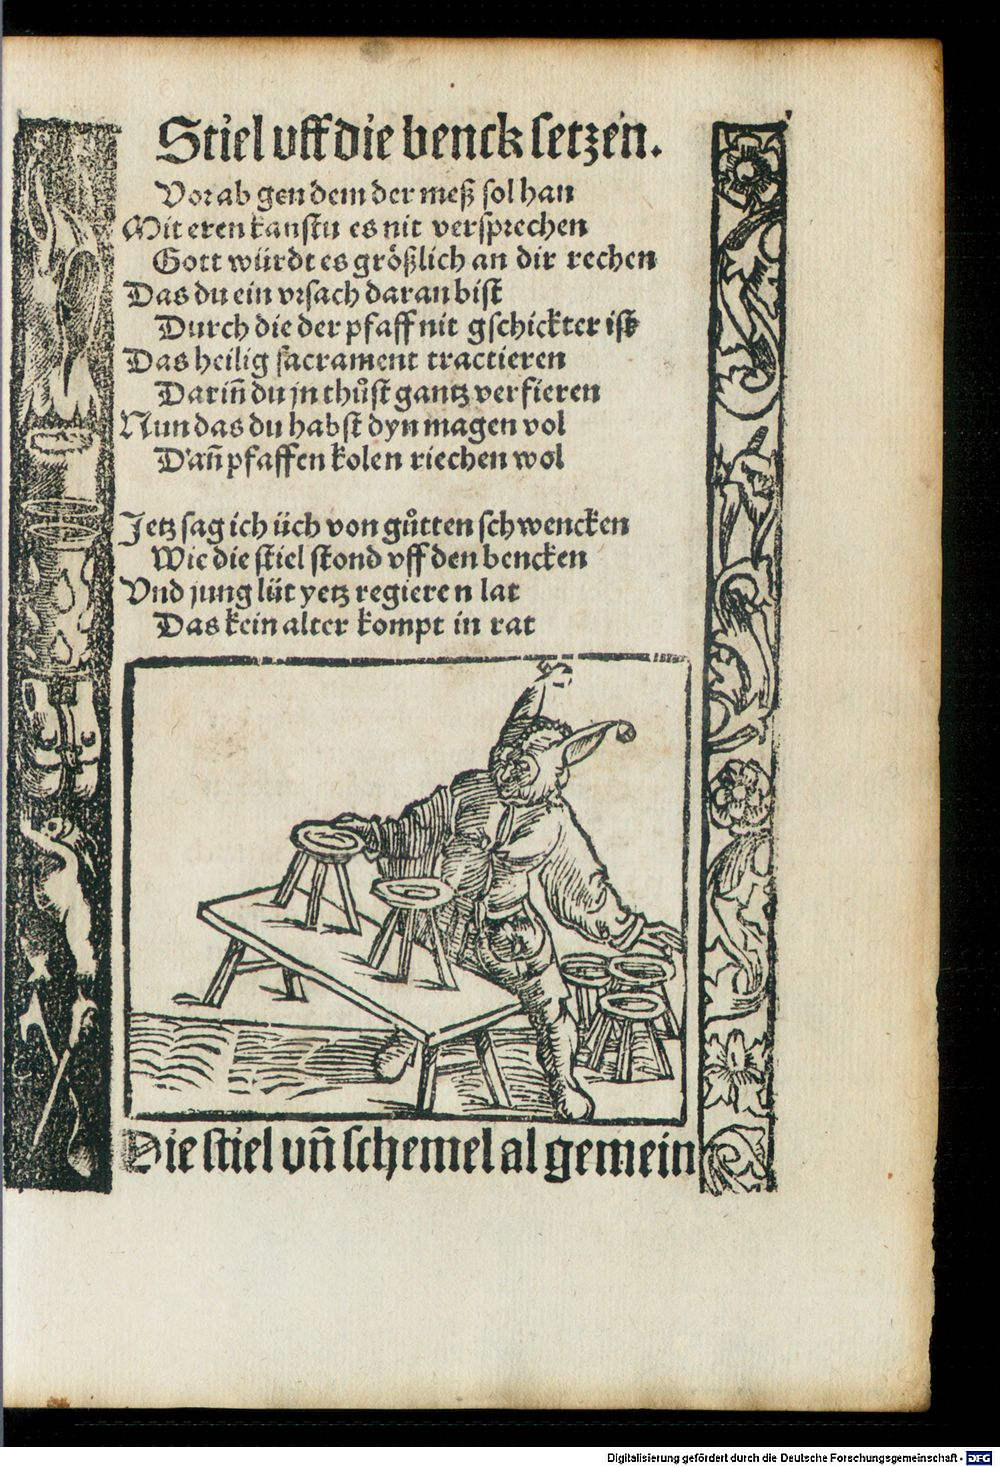 Stiel vff die benck setzen.
Vorab gen dem der meß sol han
Mit eren kanstu es nit versprechen
Gott würdt es größlich an dir rechen
Das du ein vrsach daran bist
Durch die der pfaff nit gschickter ist
Das heilig sacrament tractieren
Dariñ du jn thůst gantz verfieren
Nun das du habst dyn magen vol
Dañ pfaffen kolen riechen wol
Jetz sag ich üch von gůtten schwencken
Wie die stiel stond vff den bencken
Vnd jung lüt yetz regieren lat
Das kein alter kompt in rat
Die stiel vñ schemel al gemein
Digitalisierung gefördert durch die Deutsche Forschungsgemeinschaft - DFG